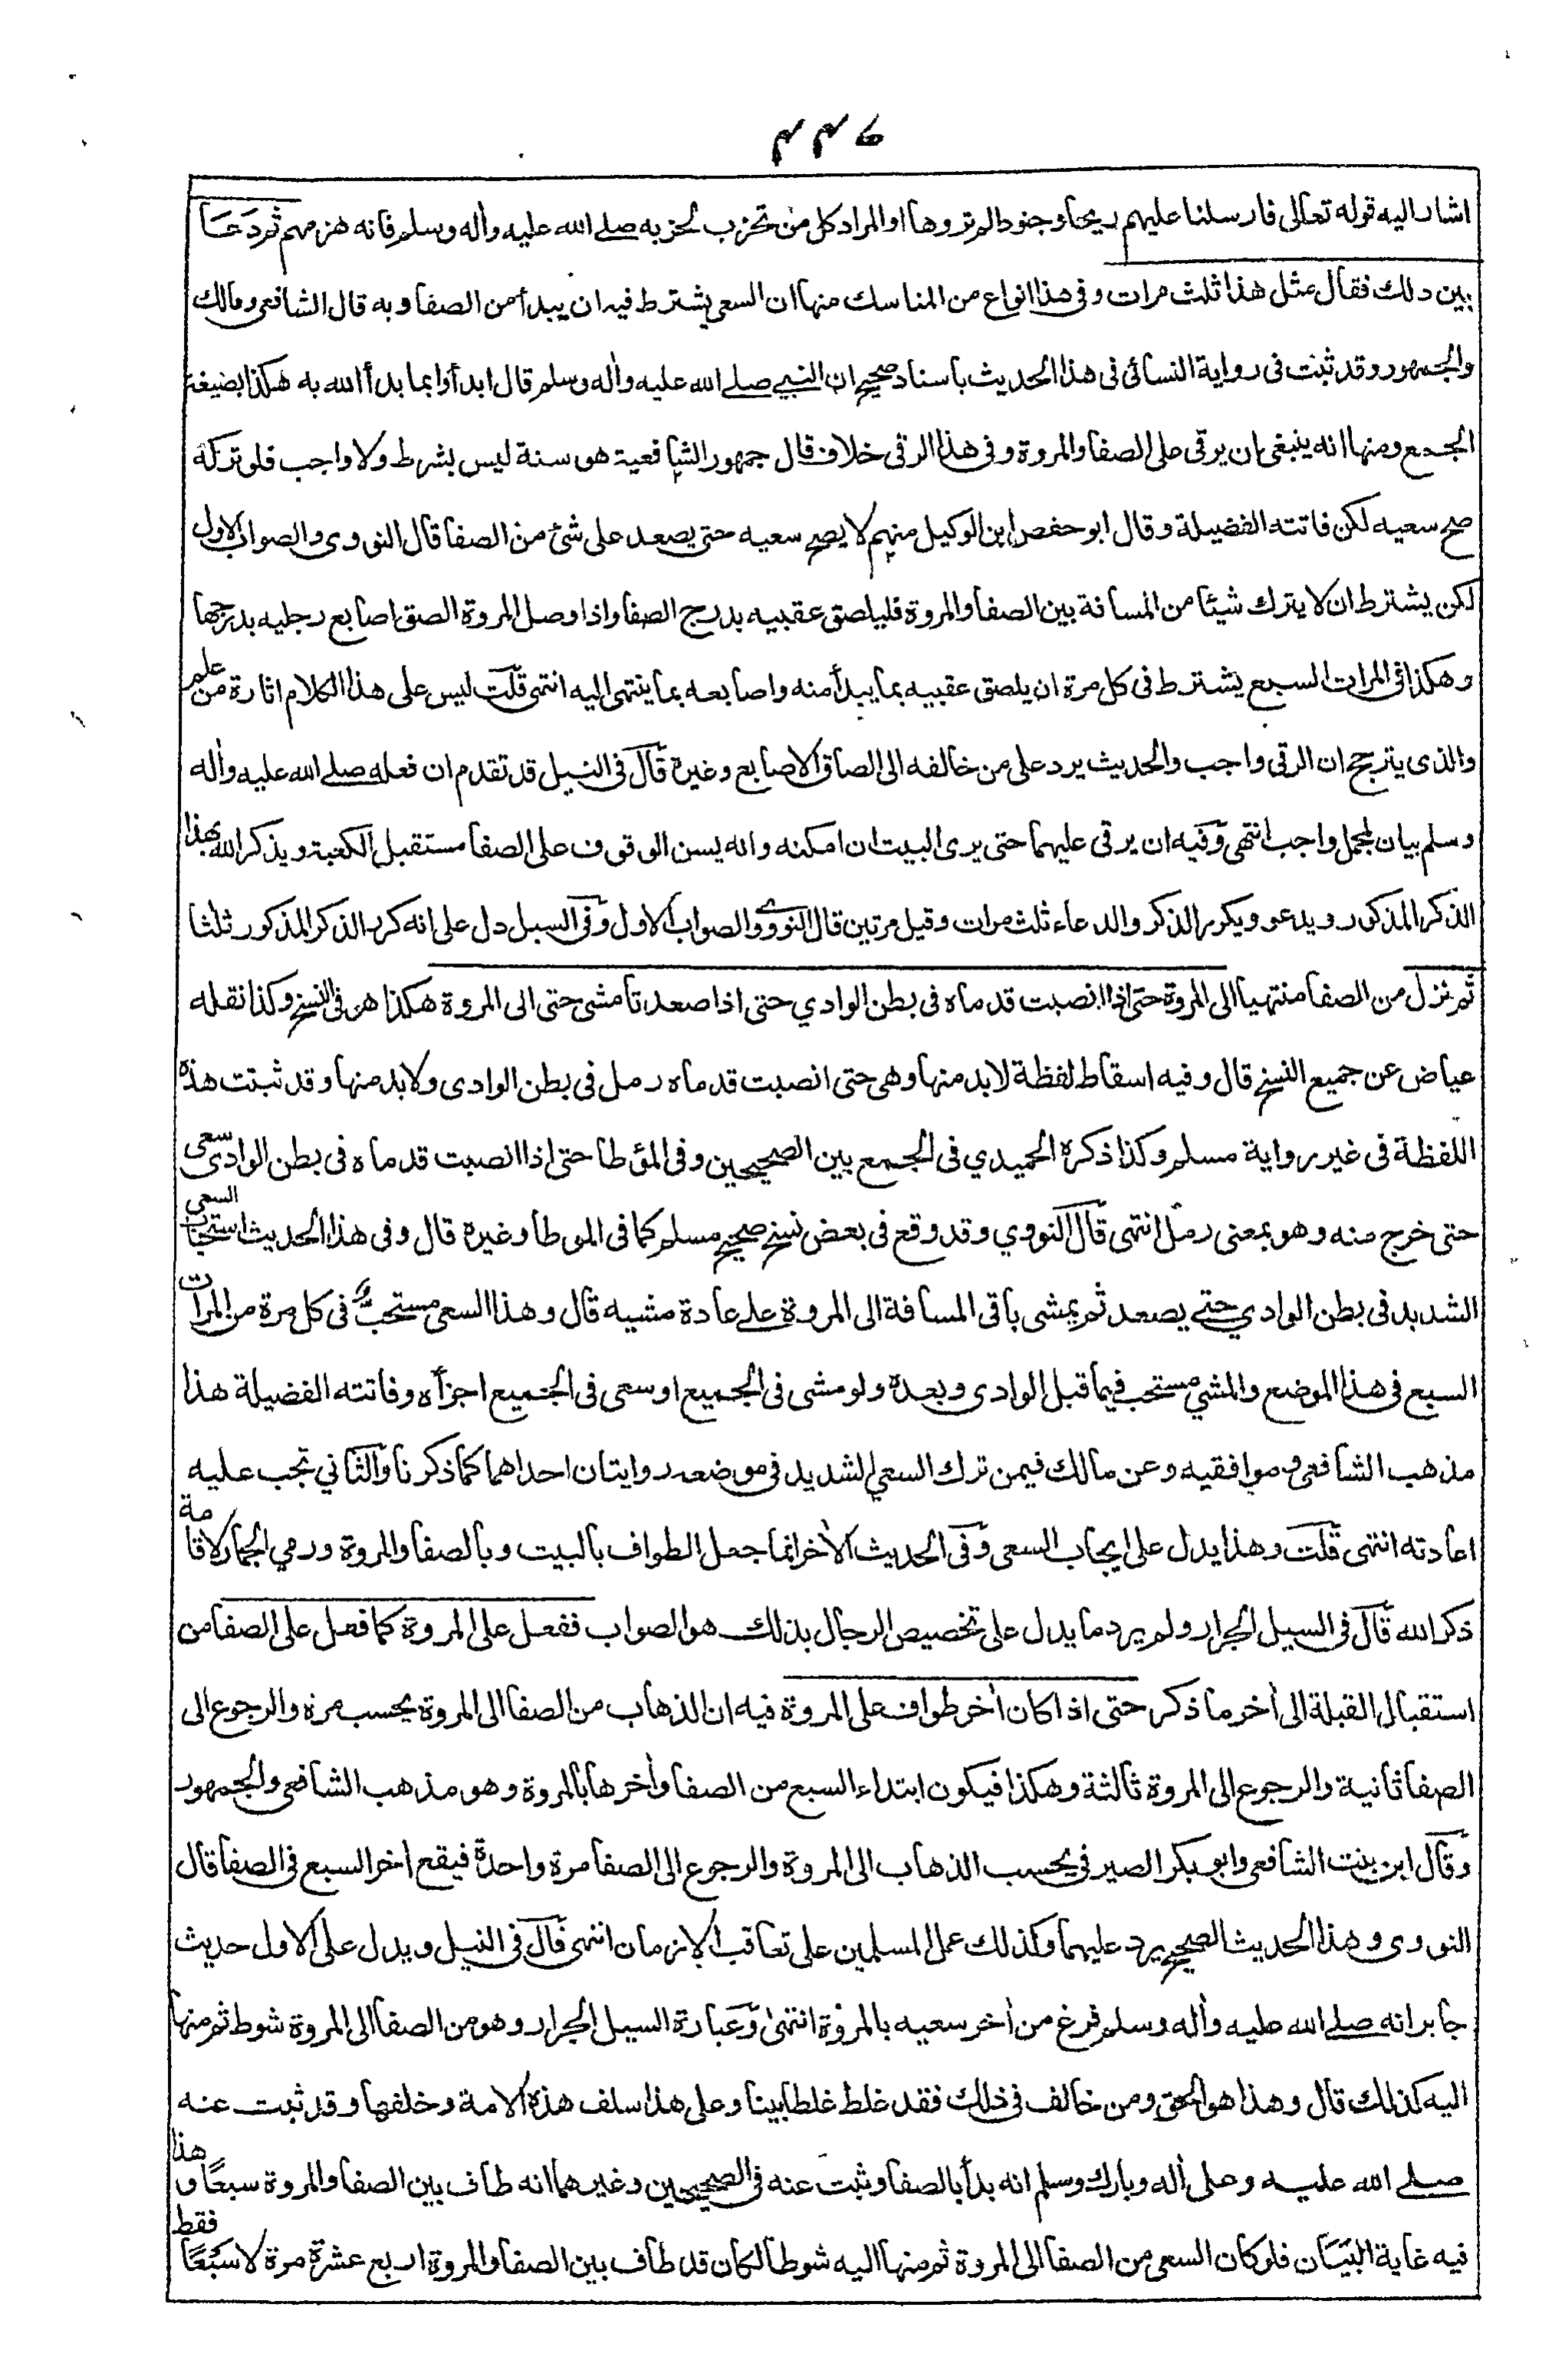 ٤٤٦
اشار اليه قوله تعالى فارسلنا عليهم ريحا وجنودا لم تروها او المراد كل من تحزب لحزبه صلے الله عليه واٰله وسلم فانه هزمهم ثم دَعَا
بين ذلك فقال مثل هذا ثلث مرات وفى هذا انواع من المناسك منها ان السعى يشترط فيه ان يبدأ من الصفا وبه قال الشافعى ومالك
والجمهور وقد ثبت فى رواية النسائى فى هذا الحديث باسناد صحيح ان النبي صلے الله عليه واٰله وسلم قال ابدأوا بما بدأ الله به هكذا بصيغة
الجمع ومنها انه ينبغى ان يرقى على الصفا والمروة وفى هذا الرقى خلاف قال جمهور الشافعية هو سنة ليس بشرط ولا واجب فلو تركه
صح سعيه لكن فاتته الفضيلة وقال ابو حفص ابن الوكيل منهم لا يصح سعيه حتى يصعد على شئ من الصفا قال النووى والصواب الاول
لكن يشترط ان لا يترك شيئا من المسافة بين الصفا والمروة فليلصق عقبيه بدرج الصفا واذا وصل المروة الصق اصابع رجليه بدرجها
وهكذا فى المرات السبع يشترط فى كل مرة ان يلصق عقبيه بما يبدأ منه واصابعه بما ينتهى اليه انتهى قلت ليس على هذا الكلام اثارة من علم
والذى يترجح ان الرقى واجب والحديث يرد على من خالفه الى الصاق الاصابع وغيره قال فى النيل قد تقدم ان فعله صلے الله عليه واٰله
وسلم بيان لمجمل واجب انتهى وفيه ان يرقى عليهما حتى يرى البيت ان امكنه وانه يسن الوقوف على الصفا مستقبل الكعبة ويذكر الله بهذا
الذكر المذكور ويدعو ويكرر الذكر والدعاء ثلث مرات وقيل مرتين قال النووي والصواب الاول وفى السبل دل على انه كرر الذكر المذكور ثلثا
ثم نزل من الصفا منتهيا الى المروة حتى اذا انصبت قدماه فى بطن الوادي حتى اذا صعدتا مشى حتى الى المروة هكذا هو فى النسخ وكذا نقله
عياض عن جميع النسخ قال وفيه اسقاط لفظة لابد منها وهى حتى انصبت قدماه رمل فى بطن الوادى ولابد منها وقد ثبتت هذه
اللفظة فى غير رواية مسلم وكذا ذكره الحميدي فى الجمع بين الصحيحين وفى المؤطا حتى اذا انصبت قدماه فى بطن الوادى سعى
حتى خرج منه وهو بمعنى رمل انتهى قال النووي وقد وقع فى بعض نسخ صحيح مسلم كما فى الموطا وغيره قال وفى هذا الحديث استحباب السعى
الشديد فى بطن الوادي حتے يصعد ثم يمشى باقى المسافة الى المروة علے عادة مشيه قال وهذا السعى مستحبٌ فى كل مرة من المرات
السبع فى هذا الموضع والمشي مستحب فيما قبل الوادى وبعده ولو مشى فى الجميع او سعى فى الجميع اجزأه وفاتته الفضيلة هذا
مذهب الشافعى وموافقيه وعن مالك فيمن ترك السعي الشديد فى موضعه روايتان احداهما كما ذكرنا والثاني تجب عليه
اعادته انتهى قلت وهذا يدل على ايجاب السعى وفى الحديث الاٰخر انما جعل الطواف بالبيت وبالصفا والمروة ورمي الجمار لاقامة
ذكر الله قال فى السيل الجرار ولم يرد ما يدل على تخصيص الرجال بذلك هو الصواب ففعل على المروة كما فعل على الصفا من
استقبال القبلة الى اٰخر ما ذكر حتى اذا كان اٰخر طواف على المروة فيه ان الذهاب من الصفا الى المروة يحسب مرة والرجوع الى
الصفا ثانية والرجوع الى المروة ثالثة وهكذا فيكون ابتداء السبع من الصفا واٰخرها بالمروة وهو مذهب الشافعى والجمهور
وقال ابن بنت الشافعى وابو بكر الصيرفى يحسب الذهاب الى المروة والرجوع الى الصفا مرة واحدة فيقع اخر السبع فى الصفا قال
النووى وهذا الحديث الصحيح يرد عليهما وكذلك عمل المسلمين على تعاقب الازمان انتهى قال فى النيل ويدل على الاول حديث
جابر انه صلے الله عليه واٰله وسلم فرغ من اٰخر سعيه بالمروة انتهىٰ وعبارة السيل الجرار وهو من الصفا الى المروة شوط ثم منها
اليه كذلك قال وهذا هو الحق ومن خالف فى ذلك فقد غلط غلطا بينا وعلى هذا سلف هذه الامة وخلفها وقد ثبت عنه
صلے الله عليه وعلى اٰله وبارك وسلم انه بدأ بالصفا وثبت عنه فى الصحيحين وغيرهما انه طاف بين الصفا والمروة سبعًا وهذا
فيه غاية البَيَان فلو كان السعى من الصفا الى المروة ثم منها اليه شوطا لكان قد طاف بين الصفا والمروة اربع عشرة مرة لا سَبْعًا فقط